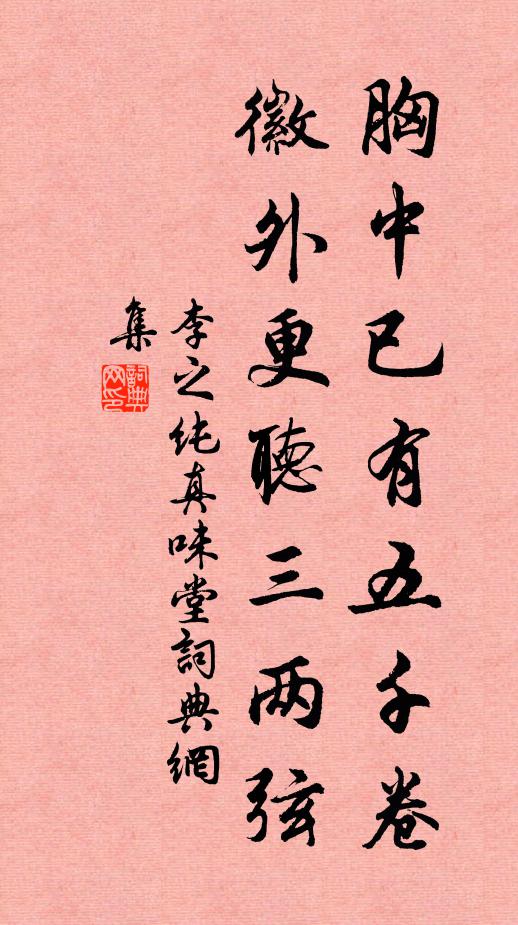 胸中已有五千卷
徽外更聽三两弦
李之纯真味堂詞典網
集
詞典網印